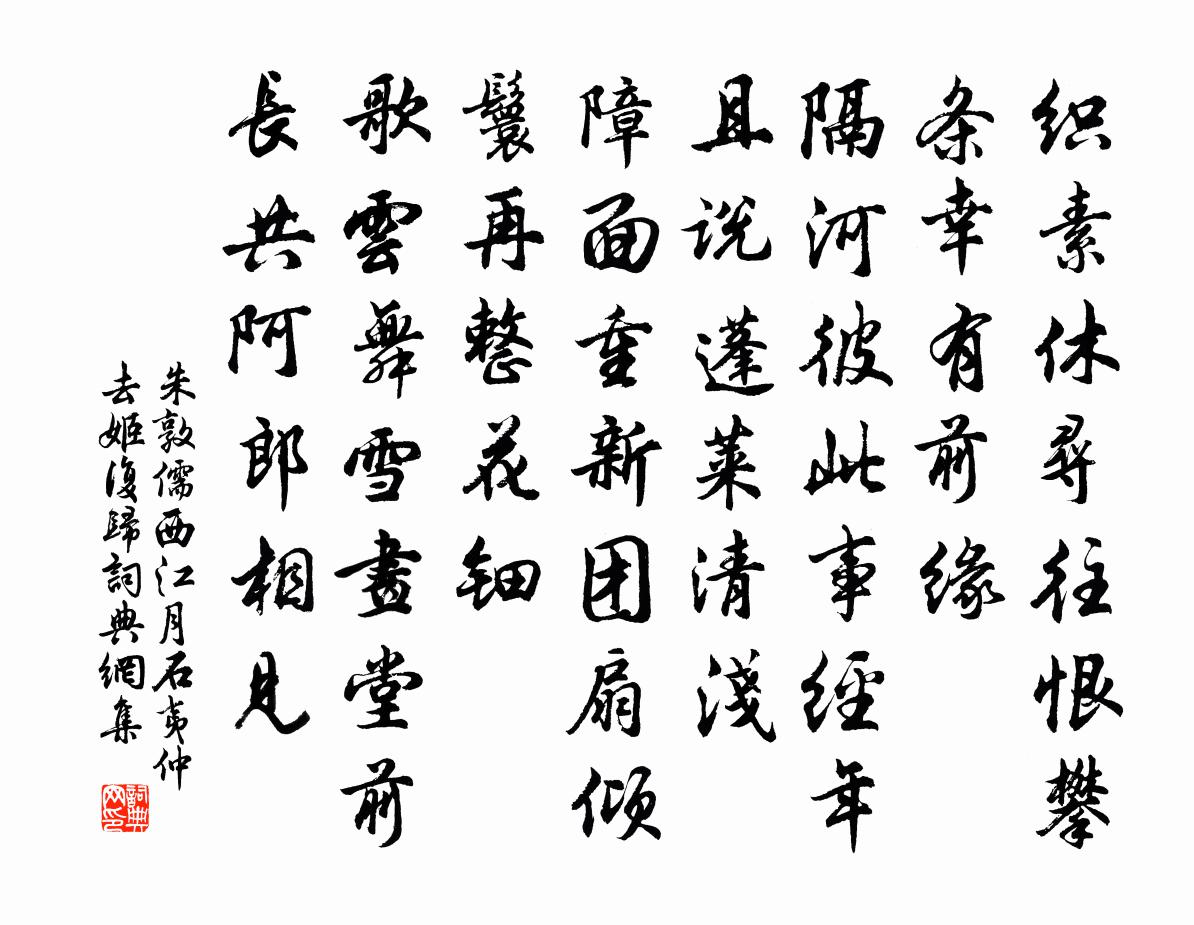 织素休尋往恨攀
条幸有前缘
隔河彼此事經年
且说蓬莱清淺
障面重新团扇倾
鬟再整花钿
歌雲舞雪畫堂前
長共阿郎相見
朱敦儒西江月石夷仲
去姬復歸詞典網集
詞典网印